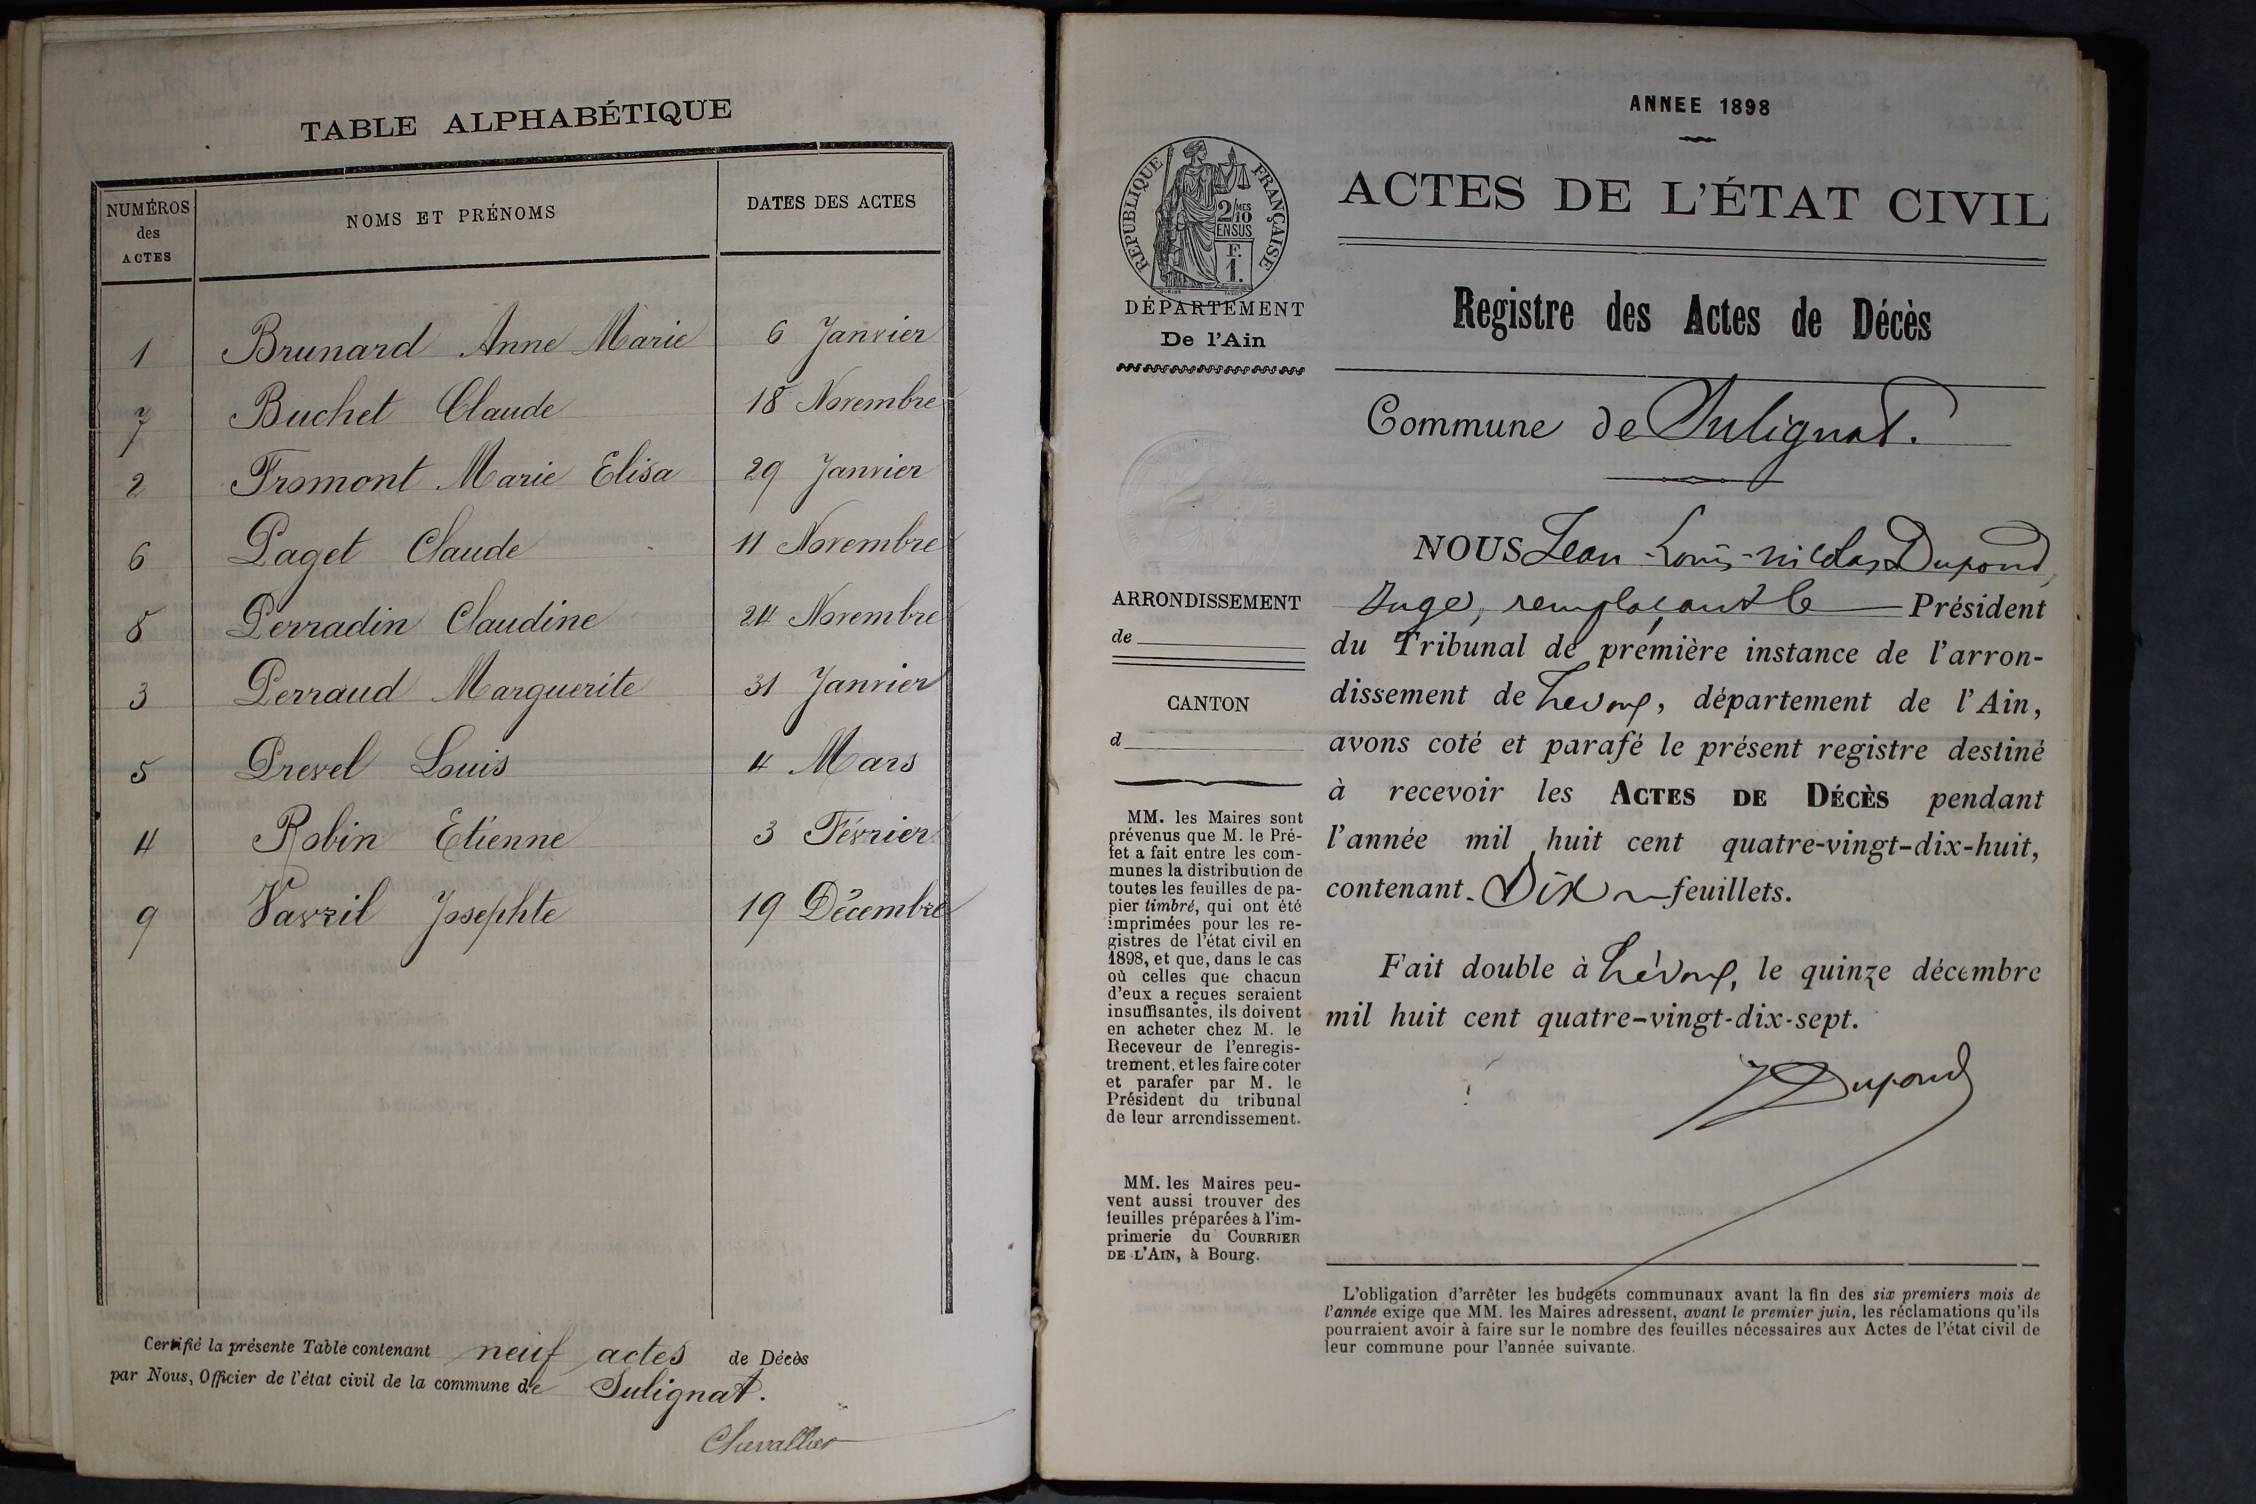 TABLE ALPHABÉTIQUE
NUMÉROS des ACTES
NOMS ET PRÉNOMS
DATES DES ACTES
1 Brunard Anne Marie 6 Janvier
7 Buchet Claude 18 Novembre
2 Fromont Marie Elisa 29 Janvier
6 Paget Claude 11 Novembre
8 Perradin Claudine 24 Novembre
3 Perraud Marguerite 31 Janvier
5 Prevel Louis 4 Mars
4 Robin Etienne 3 Février
9 Vavril Josephte 19 Décembre
Certifié la présente Table contenant neuf actes de Décès
par Nous, Officier de l'état civil de la commune de Sulignat.
Chevallier
ANNEE 1898
RÉPUBLIQUE FRANÇAISE
2/10 MES
EN SUS
F.
1.
DÉPARTEMENT
De l'Ain
ACTES DE L'ÉTAT CIVIL
Registre des Actes de Décès
Commune de Sulignat.
ARRONDISSEMENT
de
CANTON
d
MM. les Maires sont
prévenus que M. le Pré-
fet a fait entre les com-
munes la distribution de
toutes les feuilles de pa-
pier timbré, qui ont été
imprimées pour les re-
gistres de l'état civil en
1898, et que, dans le cas
où celles que chacun
d'eux a reçues seraient
insuffisantes, ils doivent
en acheter chez M. le
Receveur de l'enregis-
trement, et les faire coter
et parafer par M. le
Président du tribunal
de leur arrondissement.
MM. les Maires peu-
vent aussi trouver des
feuilles préparées à l'im-
primerie du COURRIER
DE L'AIN, à Bourg.
NOUS Jean-Louis-Nicolas Dupond,
Juge, remplaçant le Président
du Tribunal de première instance de l'arron-
dissement de Trévoux, département de l'Ain,
avons coté et parafé le présent registre destiné
à recevoir les ACTES DE DÉCÈS pendant
l'année mil huit cent quatre-vingt-dix-huit,
contenant Dix feuillets.
Fait double à Trévoux, le quinze décembre
mil huit cent quatre-vingt-dix-sept.
Dupond
L'obligation d'arrêter les budgets communaux avant la fin des six premiers mois de
l'année exige que MM. les Maires adressent, avant le premier juin, les réclamations qu'ils
pourraient avoir à faire sur le nombre des feuilles nécessaires aux Actes de l'état civil de
leur commune pour l'année suivante.